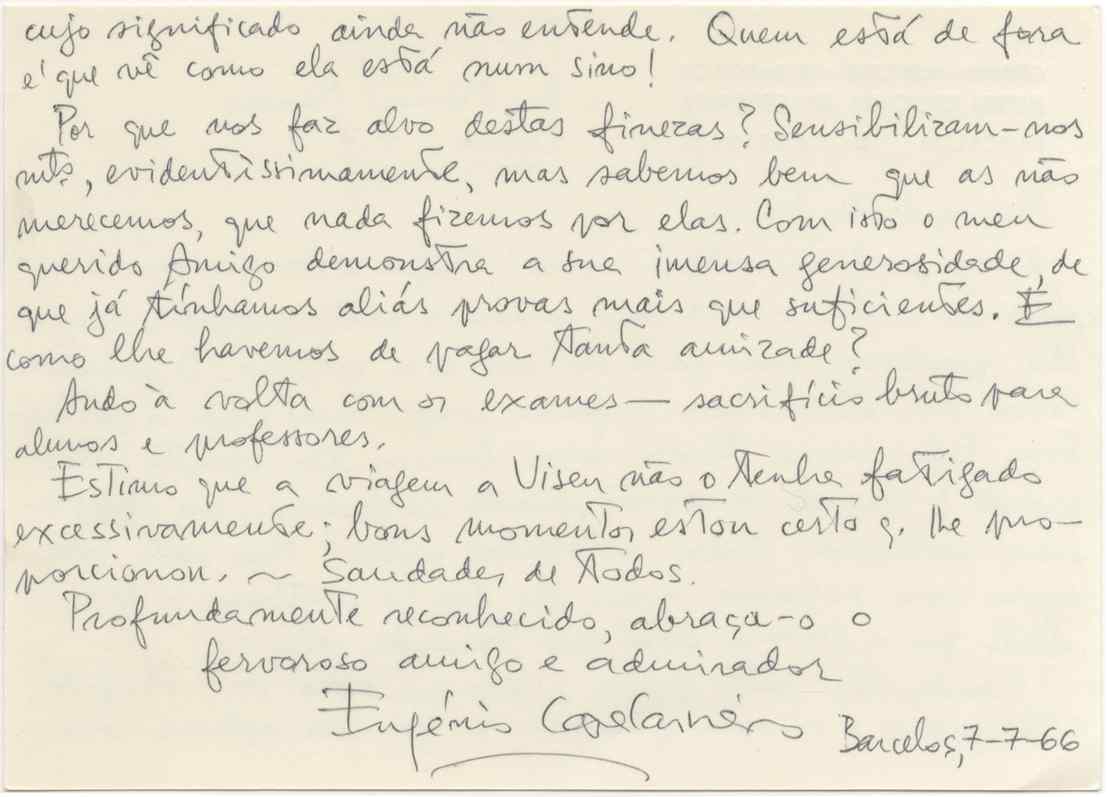 cujo significado ainda não entende. Quem está de fora
é que vê como ela está num sino!
Por que nos faz alvo destas finezas? Sensibilizam-nos
mtº, evidentissimamente, mas sabemos bem que as não
merecemos, que nada fizemos por elas. Com isto o meu
querido Amigo demonstra a sua imensa generosidade, de
que já tínhamos aliás provas mais que suficientes. E
como lhe havemos de pagar tanta amizade?
Ando à volta com os exames — sacrifício bruto para
alunos e professores.
Estimo que a viagem a Viseu não o tenha fatigado
excessivamente; bons momentos estou certo q. lhe pro-
porcionou. ~ Saudades de todos.
Profundamente reconhecido, abraça-o o
fervoroso amigo e admirador
Eugénio
Barcelos, 7-7-66